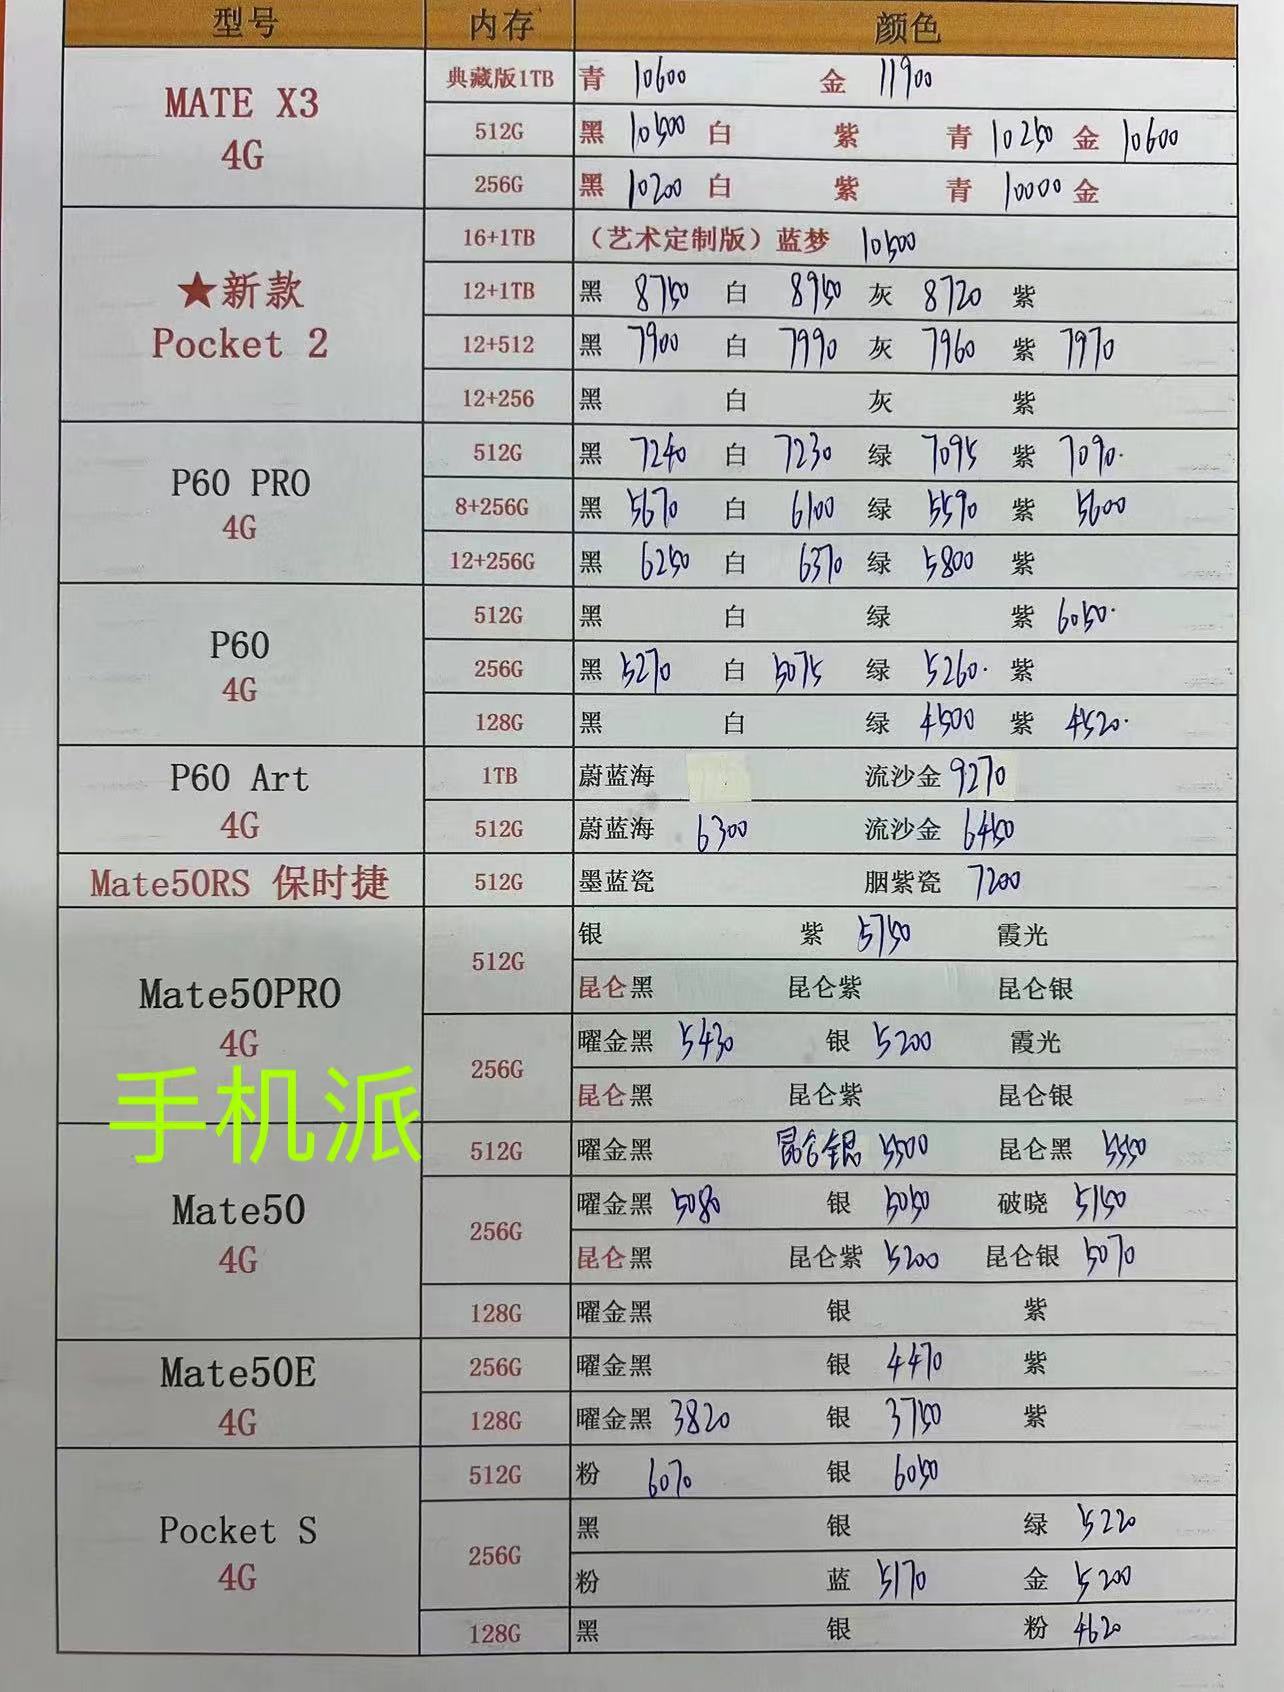 型号 内存 颜色
MATE X3
4G
典藏版1TB 青 10600 金 11900
512G 黑 10500 白 紫 青 10250 金 10600
256G 黑 10200 白 紫 青 10000 金
★新款
Pocket 2
16+1TB （艺术定制版）蓝梦 10500
12+1TB 黑 8750 白 8950 灰 8720 紫
12+512 黑 7900 白 7990 灰 7960 紫 7970
12+256 黑 白 灰 紫
P60 PRO
4G
512G 黑 7240 白 7230 绿 7095 紫 7090.
8+256G 黑 5670 白 6100 绿 5590 紫 5600
12+256G 黑 6250 白 6370 绿 5800 紫
P60
4G
512G 黑 白 绿 紫 6050.
256G 黑 5270 白 5075 绿 5260. 紫
128G 黑 白 绿 4500 紫 4520.
P60 Art
4G
1TB 蔚蓝海 流沙金 9270
512G 蔚蓝海 6300 流沙金 6450
Mate50RS 保时捷 512G 墨蓝瓷 胭紫瓷 7200
Mate50PRO
4G
512G 银 紫 5750 霞光
昆仑黑 昆仑紫 昆仑银
256G 曜金黑 5430 银 5200 霞光
昆仑黑 昆仑紫 昆仑银
手机派
Mate50
4G
512G 曜金黑 昆仑银 5500 昆仑黑 5550
256G 曜金黑 5080 银 5050 破晓 5150
昆仑黑 昆仑紫 5200 昆仑银 5070
128G 曜金黑 银 紫
Mate50E
4G
256G 曜金黑 银 4470 紫
128G 曜金黑 3820 银 3750 紫
Pocket S
4G
512G 粉 6070 银 6050
256G 黑 银 绿 5220
粉 蓝 5170 金 5200
128G 黑 银 粉 4620